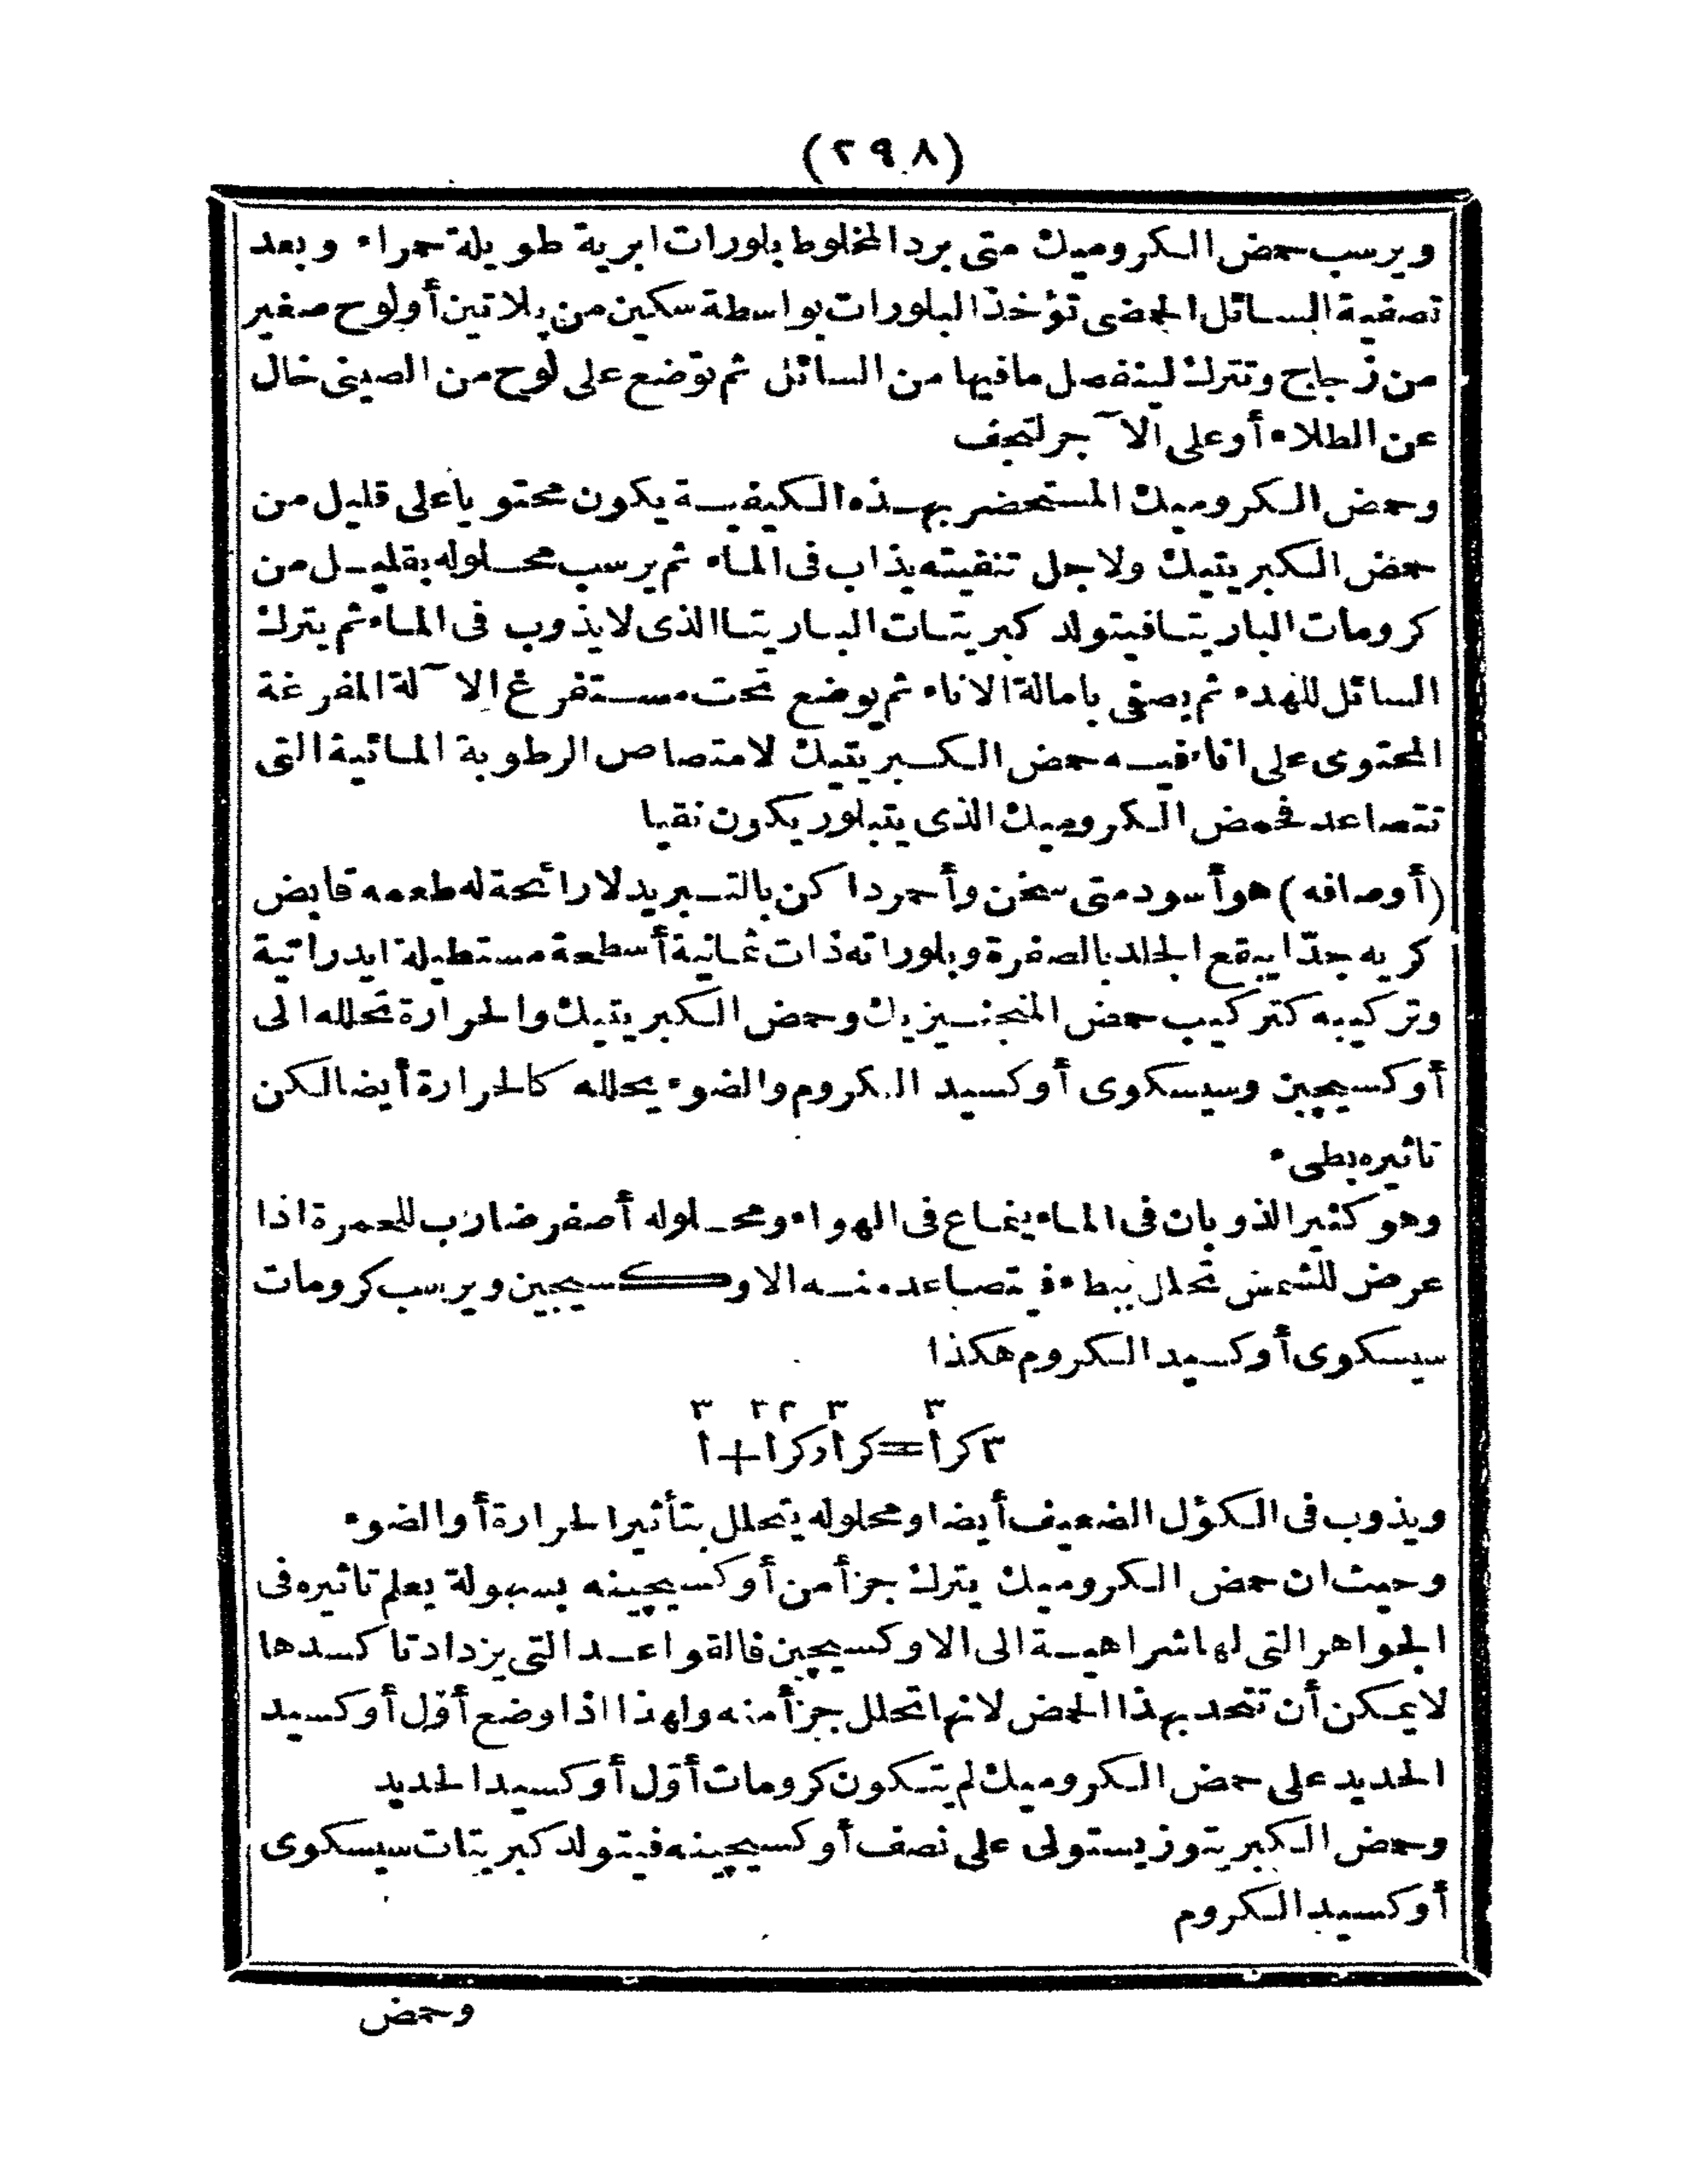 (٢٩٨)
ويرسب حمض الكروميك متى برد المخلوط بلورات ابرية طويلة حمراء وبعد
تصفية السائل الحمضى تؤخذ البلورات بواسطة سكين من پلاتين أولوح صغير
من زجاج وتترك لينفصل مافيها من السائل ثم توضع على لوح من الصينى خال
عن الطلاء أوعلى الآجر لتجف
وحمض الكروميك المستحضر بهذه الكيفية يكون محتويا على قليل من
حمض الكبريتيك ولاجل تنقيته يذاب فى الماء ثم يرسب محلوله بقليل من
كرومات الباريتا فيتولد كبريتات الباريتا الذى لايذوب فى الماء ثم يترك
السائل للهدء ثم يصفى بامالة الاناء ثم يوضع تحت مستفرغ الآلة المفرغة
المحتوى على اناء فيه حمض الكبريتيك لامتصاص الرطوبة المائية التى
تتصاعد فحمض الكروميك الذى يتبلور يكون نقيا
(أوصافه) هو أسود متى سخن وأحمر داكن بالتبريد لارائحة له طعمه قابض
كريه جدّا يبقع الجلد بالصفرة وبلوراته ذات ثمانية أسطحة مستطيلة ايدراتية
وتركيبه كتركيب حمض المنجنيزيك وحمض الكبريتيك والحرارة تحلله الى
أوكسيچين وسيسكوى أوكسيد الكروم والضوء يحلله كالحرارة أيضا لكن
تاثيره بطىء
وهو كثير الذوبان فى الماء ينماع فى الهواء ومحلوله أصفر ضارب للحمرة اذا
عرض للشمس تحلل ببطء فيتصاعد منه الاوكسيچين ويرسب كرومات
سيسكوى أوكسيد الكروم هكذا
٣ ٢ ٣ ٣ ٣
٣كرا=كرا,كرا+ا
ويذوب فى الكؤل الضعيف أيضا ومحلوله يتحلل بتأثير الحرارة أو الضوء
وحيث ان حمض الكروميك يترك جزأ من أوكسيچينه بسهولة يعلم تاثيره فى
الجواهر التى لها شراهية الى الاوكسيچين فالقواعد التى يزداد تاكسدها
لايمكن أن تتحد بهذا الحمض لانها تحلل جزأ منه ولهذا اذا وضع أوّل أوكسيد
الحديد على حمض الكروميك لم يتكون كرومات أوّل أوكسيد الحديد
وحمض الكبريتوز يستولى على نصف أوكسيچينه فيتولد كبريتات سيسكوى
أوكسيد الكروم
وحمض